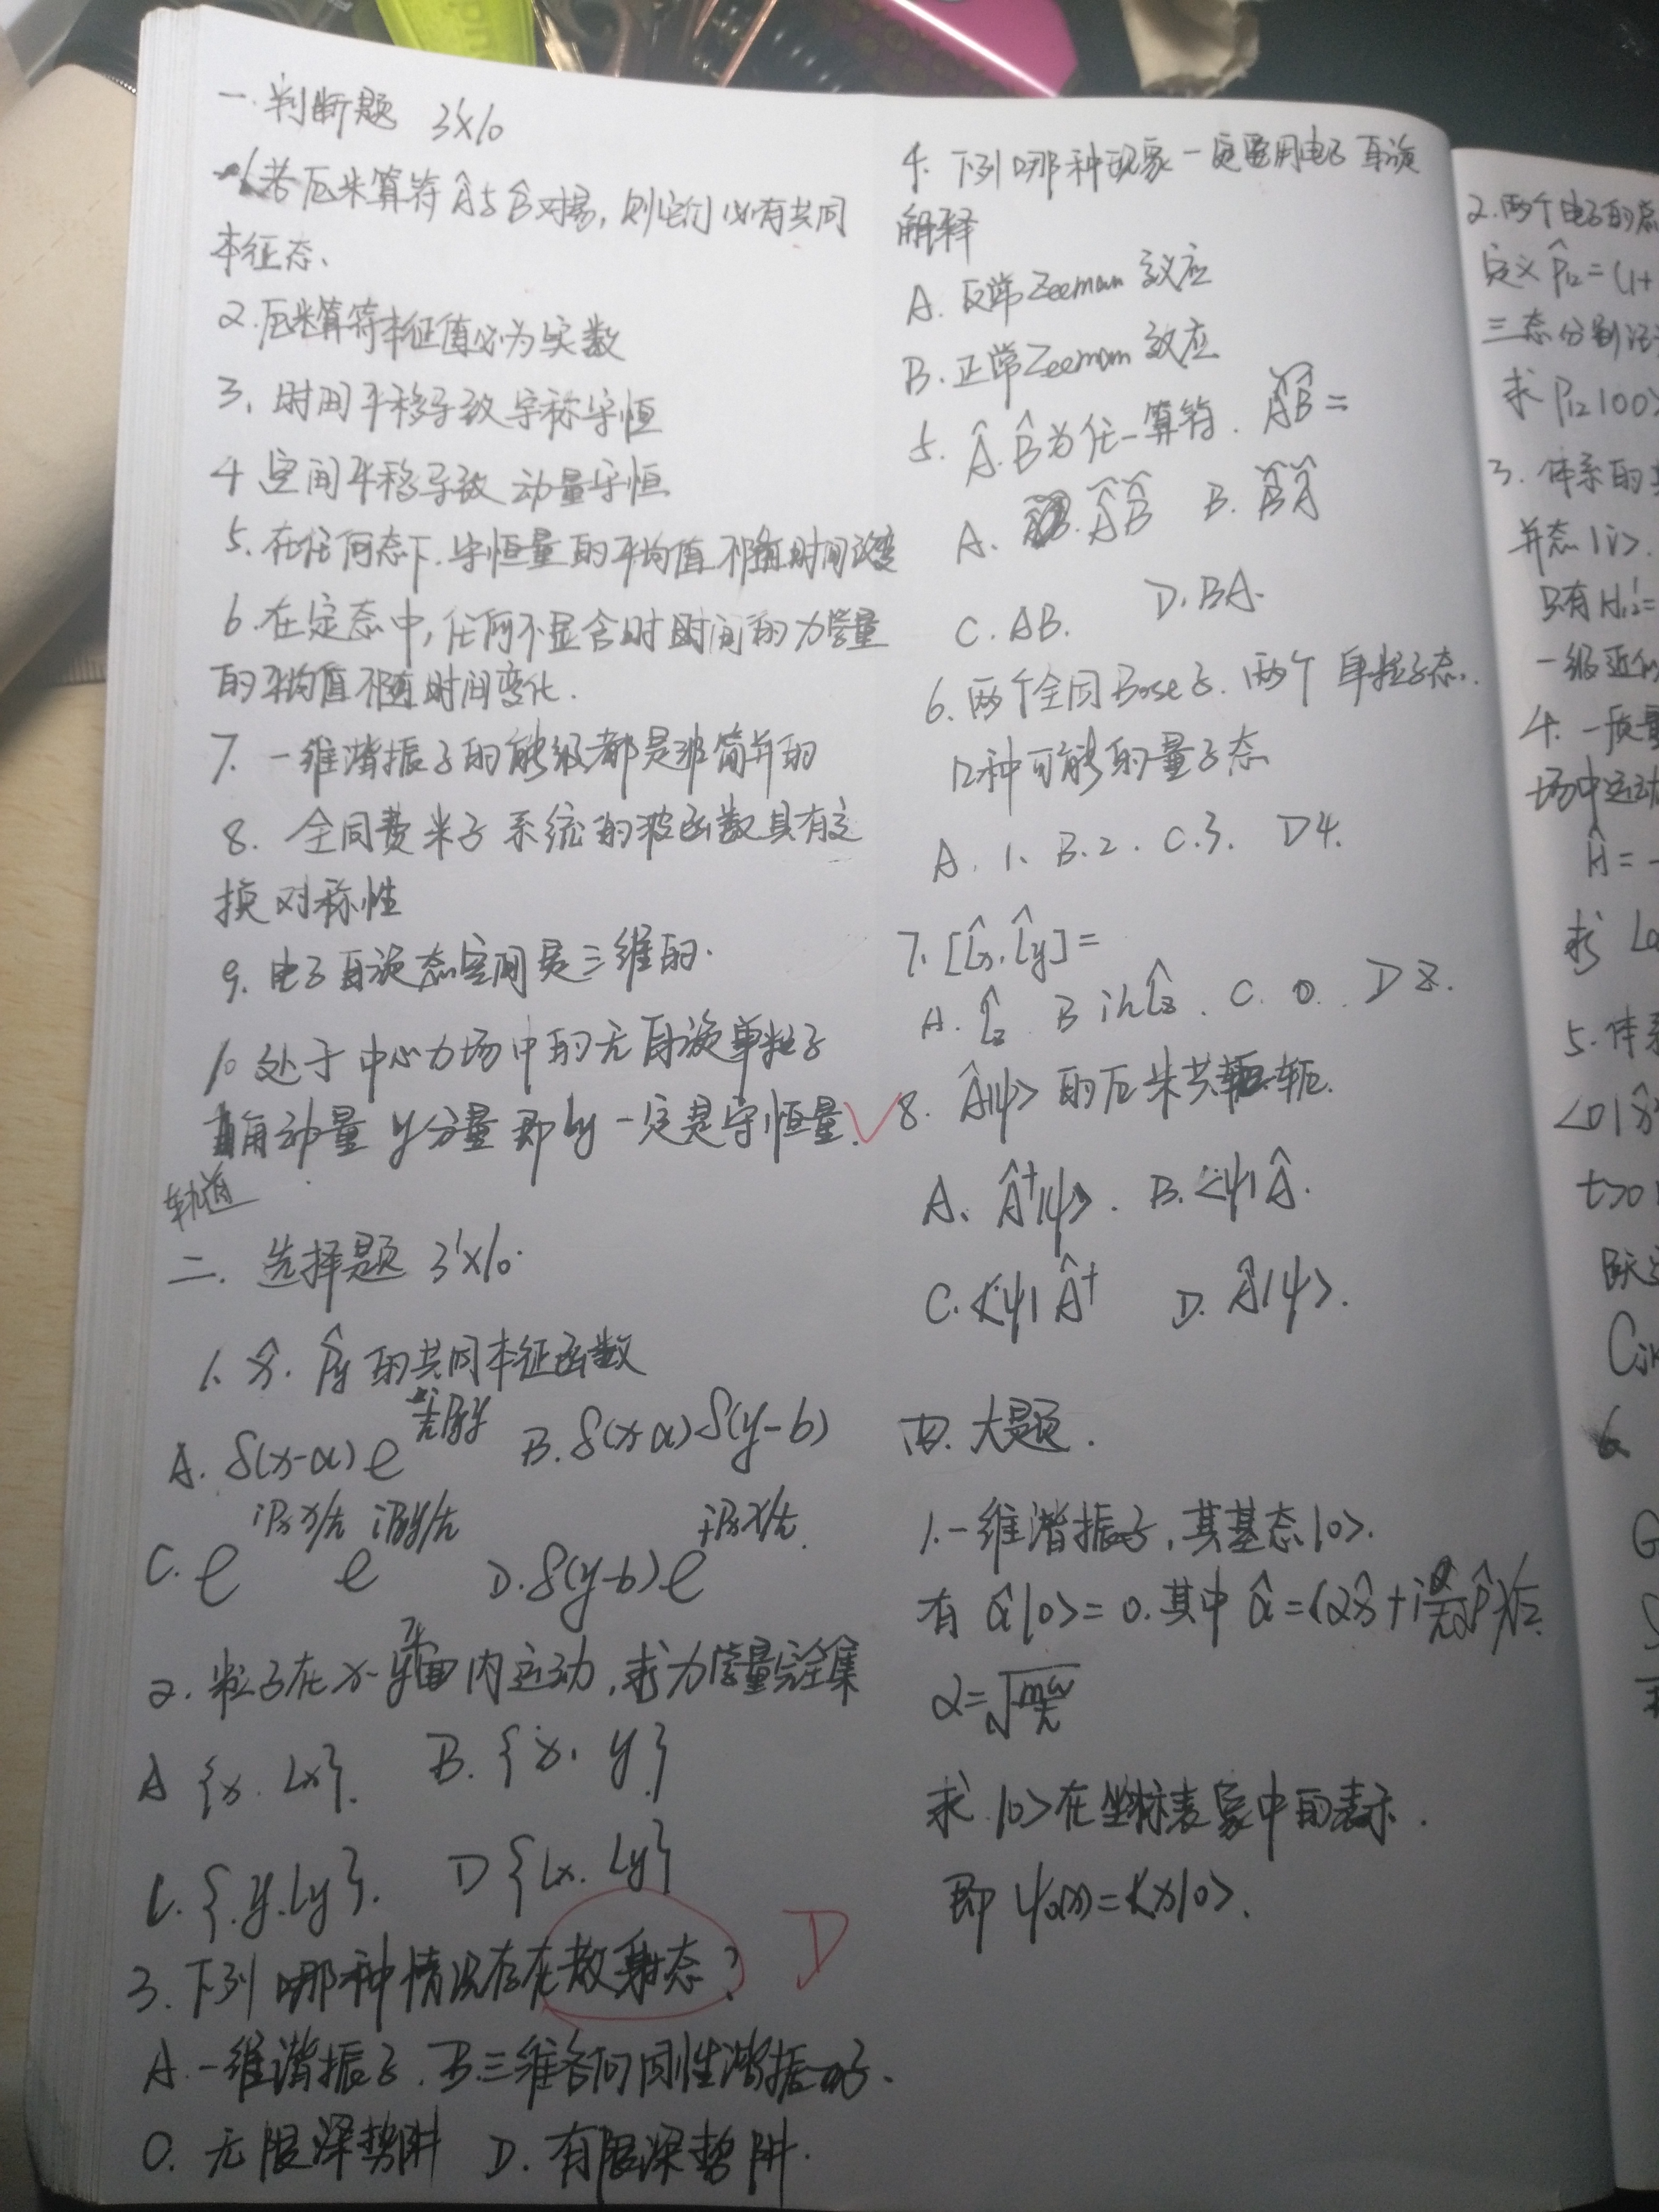 一. 判断题 3'×10
1. 若厄米算符 Â与B̂对易, 则它们必有共同
本征态、
2. 厄米算符本征值必为实数
3. 时间平移导致宇称守恒
4 空间平移导致 动量守恒
5. 在任何态下. 守恒量的平均值不随时间改变
6. 在定态中, 任何不显含时时间的力学量
的平均值不随时间变化.
7. 一维谐振子的能级都是非简并的
8. 全同费米子系统的波函数具有交
换对称性
9. 电子自旋态空间是三维的.
10 处于中心力场中的无自旋单粒子
轨道
角动量 y分量 即 Ly 一定是守恒量. ✓
二. 选择题 3'×10.
1. x̂. P̂y 的共同本征函数
A. δ(x-α)e^{iPyy/ħ} B. δ(x-α)δ(y-b)
C. e^{iPxx/ħ} e^{iPyy/ħ} D. δ(y-b)e^{iPxx/ħ}
2. 粒子在x-y平面内运动, 求力学量完全集
A {x. Lx}. B. {x. y}
C. {y. Ly}. D {Lx. Ly}
3. 下列哪种情况存在散射态? D
A. 一维谐振子. B. 三维各向同性谐振子.
C. 无限深势阱 D. 有限深势阱.
4. 下列哪种现象一定要用电子自旋
解释
A. 反常Zeeman 效应
B. 正常Zeeman 效应
5. Â. B̂为任一算符.
C. AB. D. BA.
6. 两个全同Bose子. 两个 单粒子态.
几种可能的量子态
A. 1. B. 2. C. 3. D 4.
7. [L̂x. L̂y] =
A. L̂z B iħL̂z. C. 0. D
8. Â|ψ> 的厄米共轭.
A. Â†|ψ>. B. <ψ|Â.
C. <ψ|Â† D. Â|ψ>.
四. 大题.
1. 一维谐振子, 其基态|0>.
有 â|0>=0. 其中
α=√(mω/ħ)
求 |0>在坐标表象中的表示.
即 ψ₀(x)=<x|0>.
2. 两个电子的态
定义 P̂₁₂=(1+
三态分别记
求 P₁₂|00>
3. 体系的
并态|i>.
只有H₁₂'=
一级近似
4. 一质量
场中运动
Ĥ=-
求
5. 体系
<0|x̂
t>0